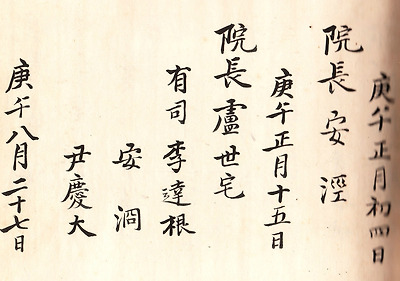 庚午正月初四日
院長 安 涇
庚午正月十五日
院長 盧世宅
有司 李達根
安 泂
尹慶大
庚午八月二十七日